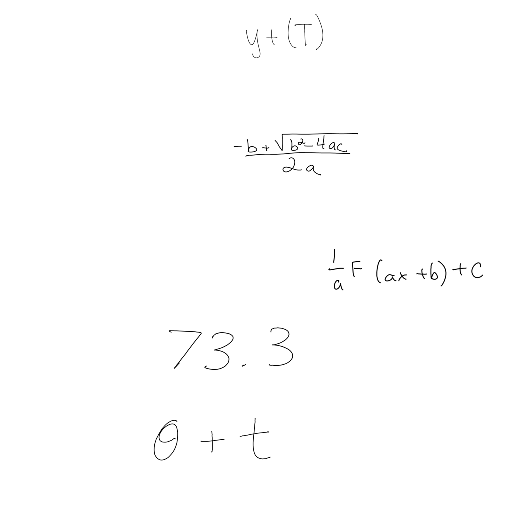 y+(T)
\frac{-b+\sqrt{b^2-4ac}}{2a}
\frac{1}{a}F(ax+b)+C
73.3
θ+t